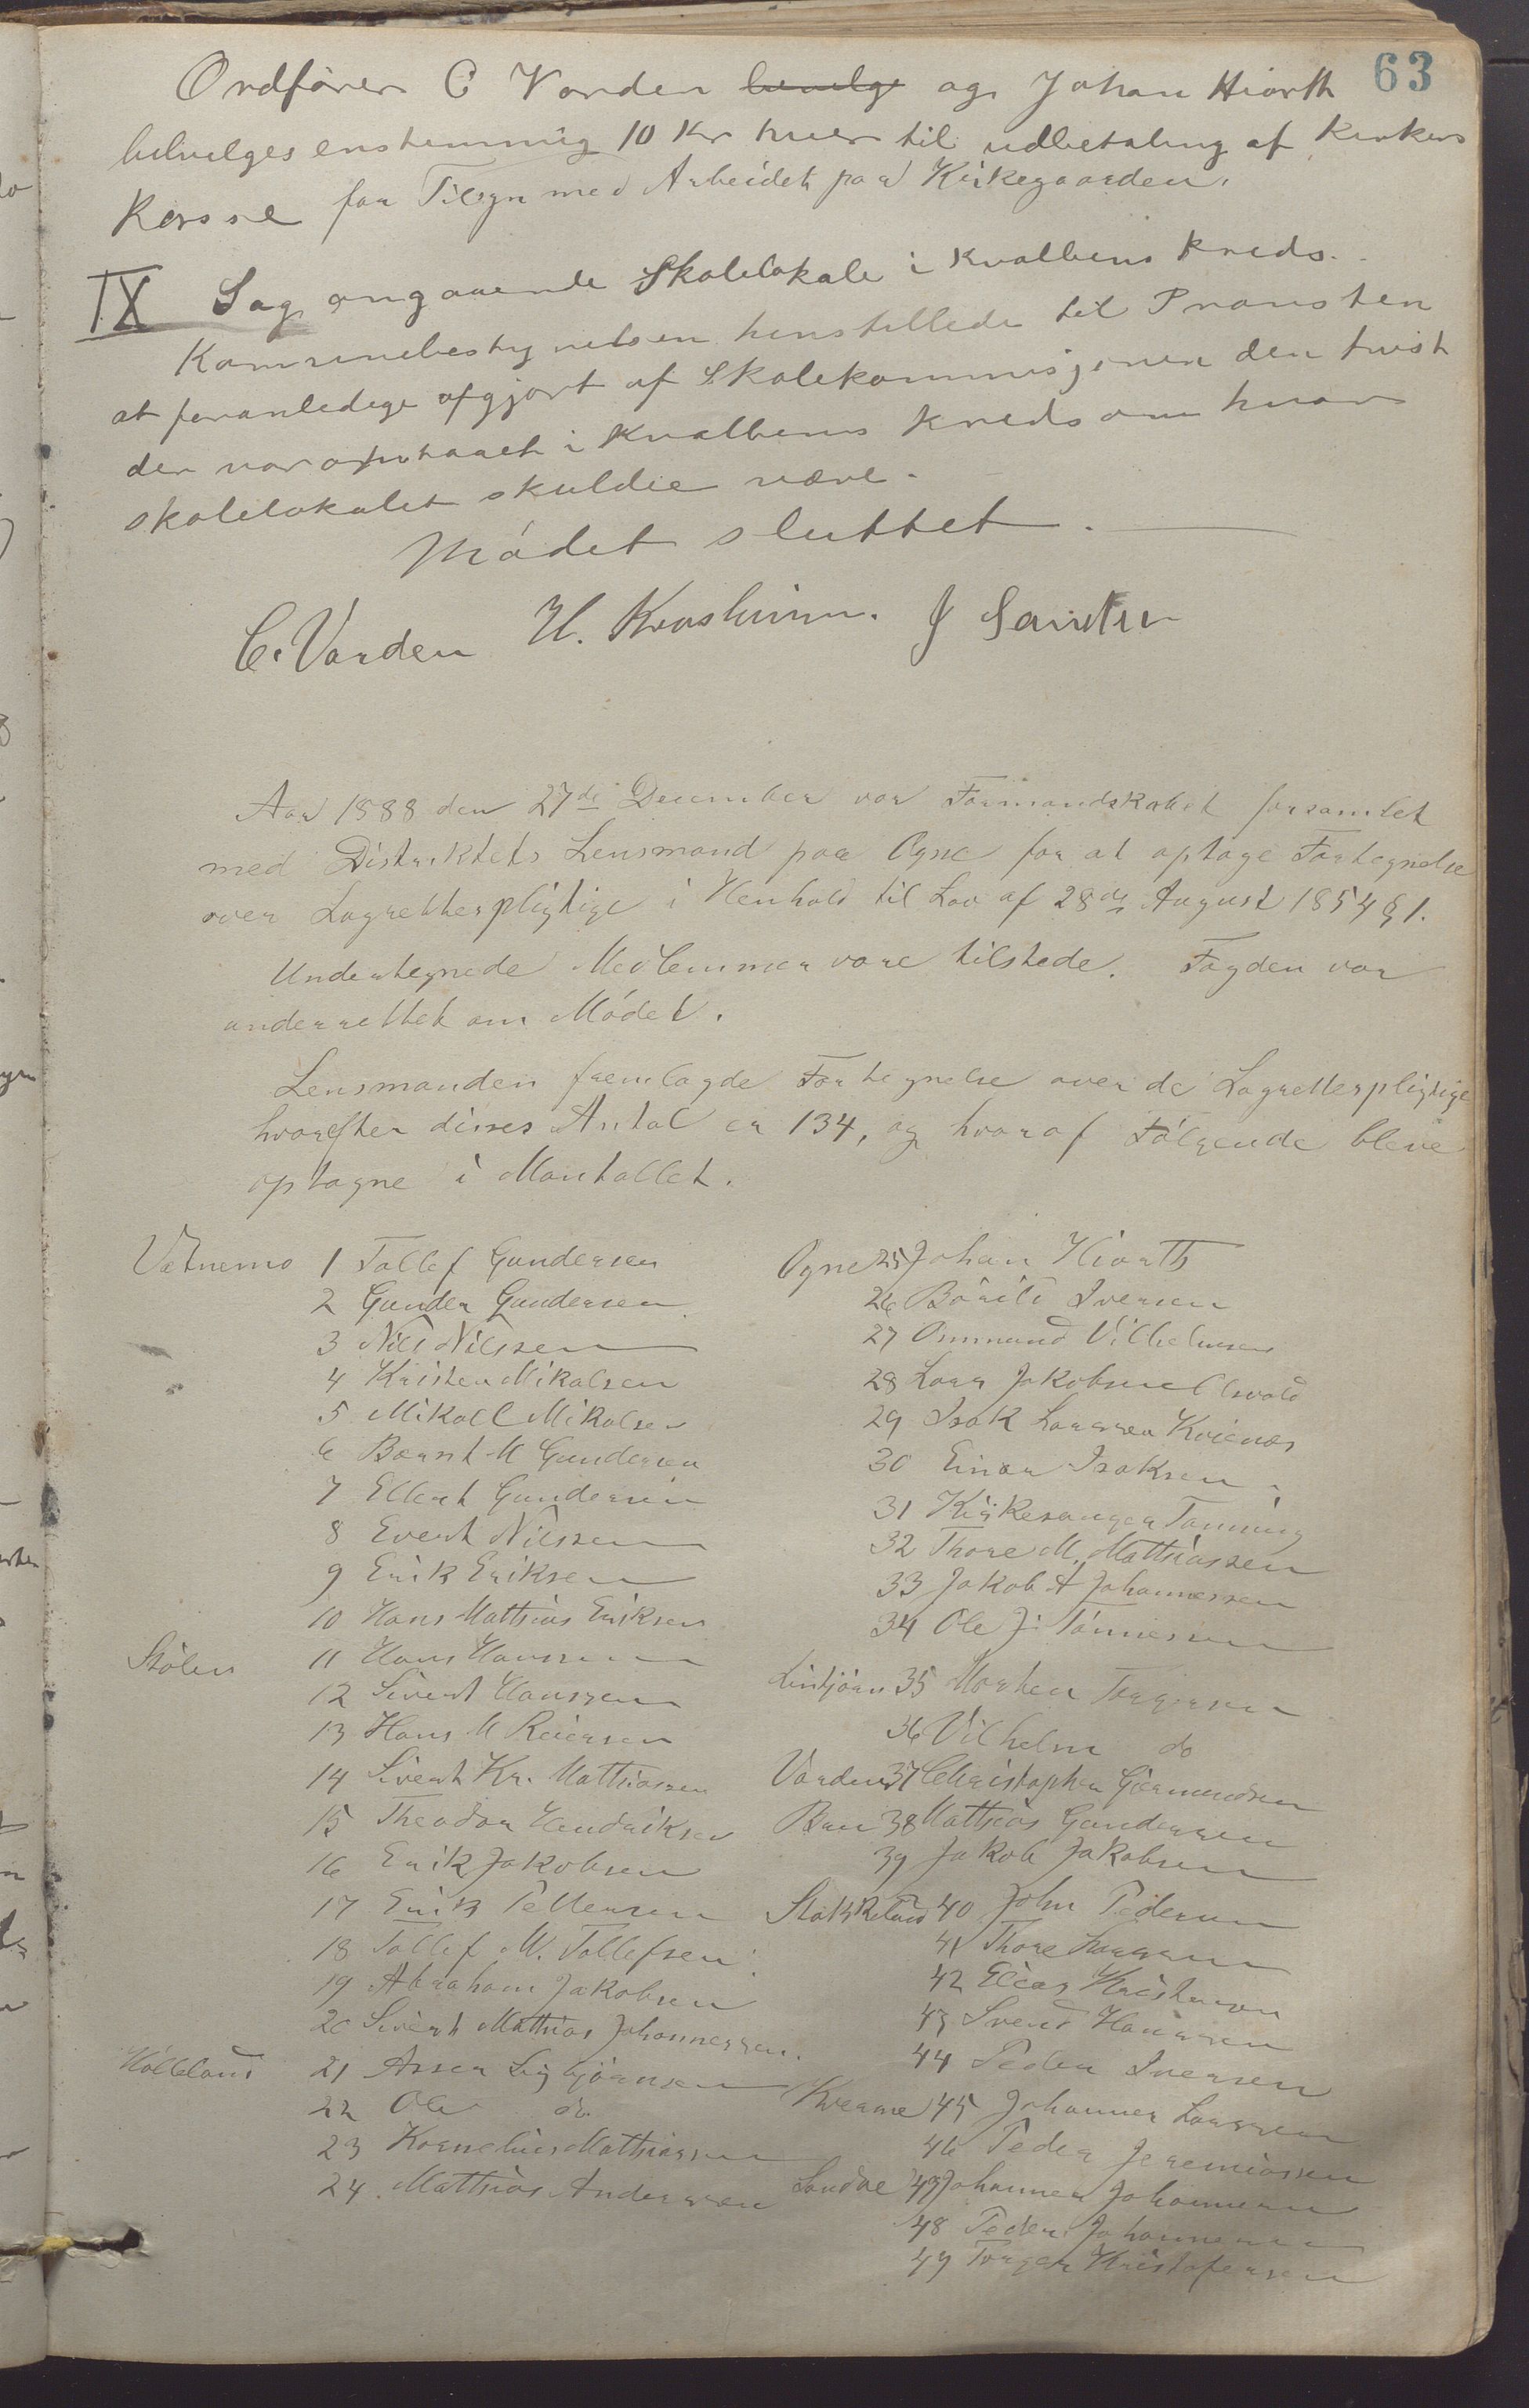 63
Ordfører C Varden bevilge og Johan Hiorth
bevelges enstemmig 10 Kr hver til udbetaling af Kirkens
Kasse for Tilsyn med Arbeidet paa Kirkegaarden.
IX Sag angaaende Skolelokale i Kvalbens Kreds.
Kommunebestyrelsen henstillede til Prousten
at foranledige afgjort af Skolekommisjonen den tvist
der var opstaaet i Kvalbens Kreds om hvor
skolelokalet skuldie være.
Mödet sluttet.
C. Varden H. Kvasheim. J Sandve
Aar 1888 den 27de December var Formandskabet forsamlet
med Distriktets Lensmand paa Ogne for at optage Fortegnelse
over Lagrettespligtige i Henhold til Lov af 28de August 1854 § 1.
Undertegnede Medlemmer vare tilstede. Fogden var
underrettet om Mödet.
Lensmanden fremlagde Fortegnelse over de Lagrettespligtige
hvorefter disses Antal er 134, og hvoraf Fölgende bleve
optagne i Mantallet.
Vetnemo 1 Tollef Gundersen
2 Gunder Gundersen
3 Nils Nilssen
4 Kristen Mikalsen
5 Mikall Mikalsen
6 Bernt M Gundersen
7 Ellert Gundersen
8 Evert Nilssen
9 Erik Eriksen
10 Hans Mathias Eriksen
Stölen 11 Hans Hanssen
12 Sivert Hanssen
13 Hans M Reiersen
14 Sivert Kr. Mathiassen
15 Theodor Hendriksen
16 Erik Jakobsen
17 Erik Pettersen
18 Tollef M. Tollefsen
19 Abraham Jakobsen
20 Sivert Mathias Johannessen.
Hölland 21 Asser Sigbjörnsen
22 Ole do
23 Kornelius Mathiassen
24 Mathias Anderssen
Ogne 25 Johan Hiorth
26 Börili Iversen
27 Ommund Vilhelmsen
28 Lars Jakobsen
29 Isak Larssen Kvienes
30 Einar Isaksen
31 Kirkesanger Tanning
32 Thore M. Mathiassen
33 Jakob A Johannessen
34 Ole J. Tönnessen
35 Morten Torgersen
36 Vilhelm do
Varden 37 Christopher Gjermundsen
Bru 38 Mathias Gundersen
39 Jakob Jakobsen
Stokkeland 40 John Pedersen
41 Thore Larssen
42 Elias Kristensen
43 Svend Hanssen
44 Peder Iversen
Kverme 45 Johannes Larssen
46 Peder Jeremiassen
Sandve 47 Johannes Johannessen
48 Peder Johannessen
49 Torger Kristofersen